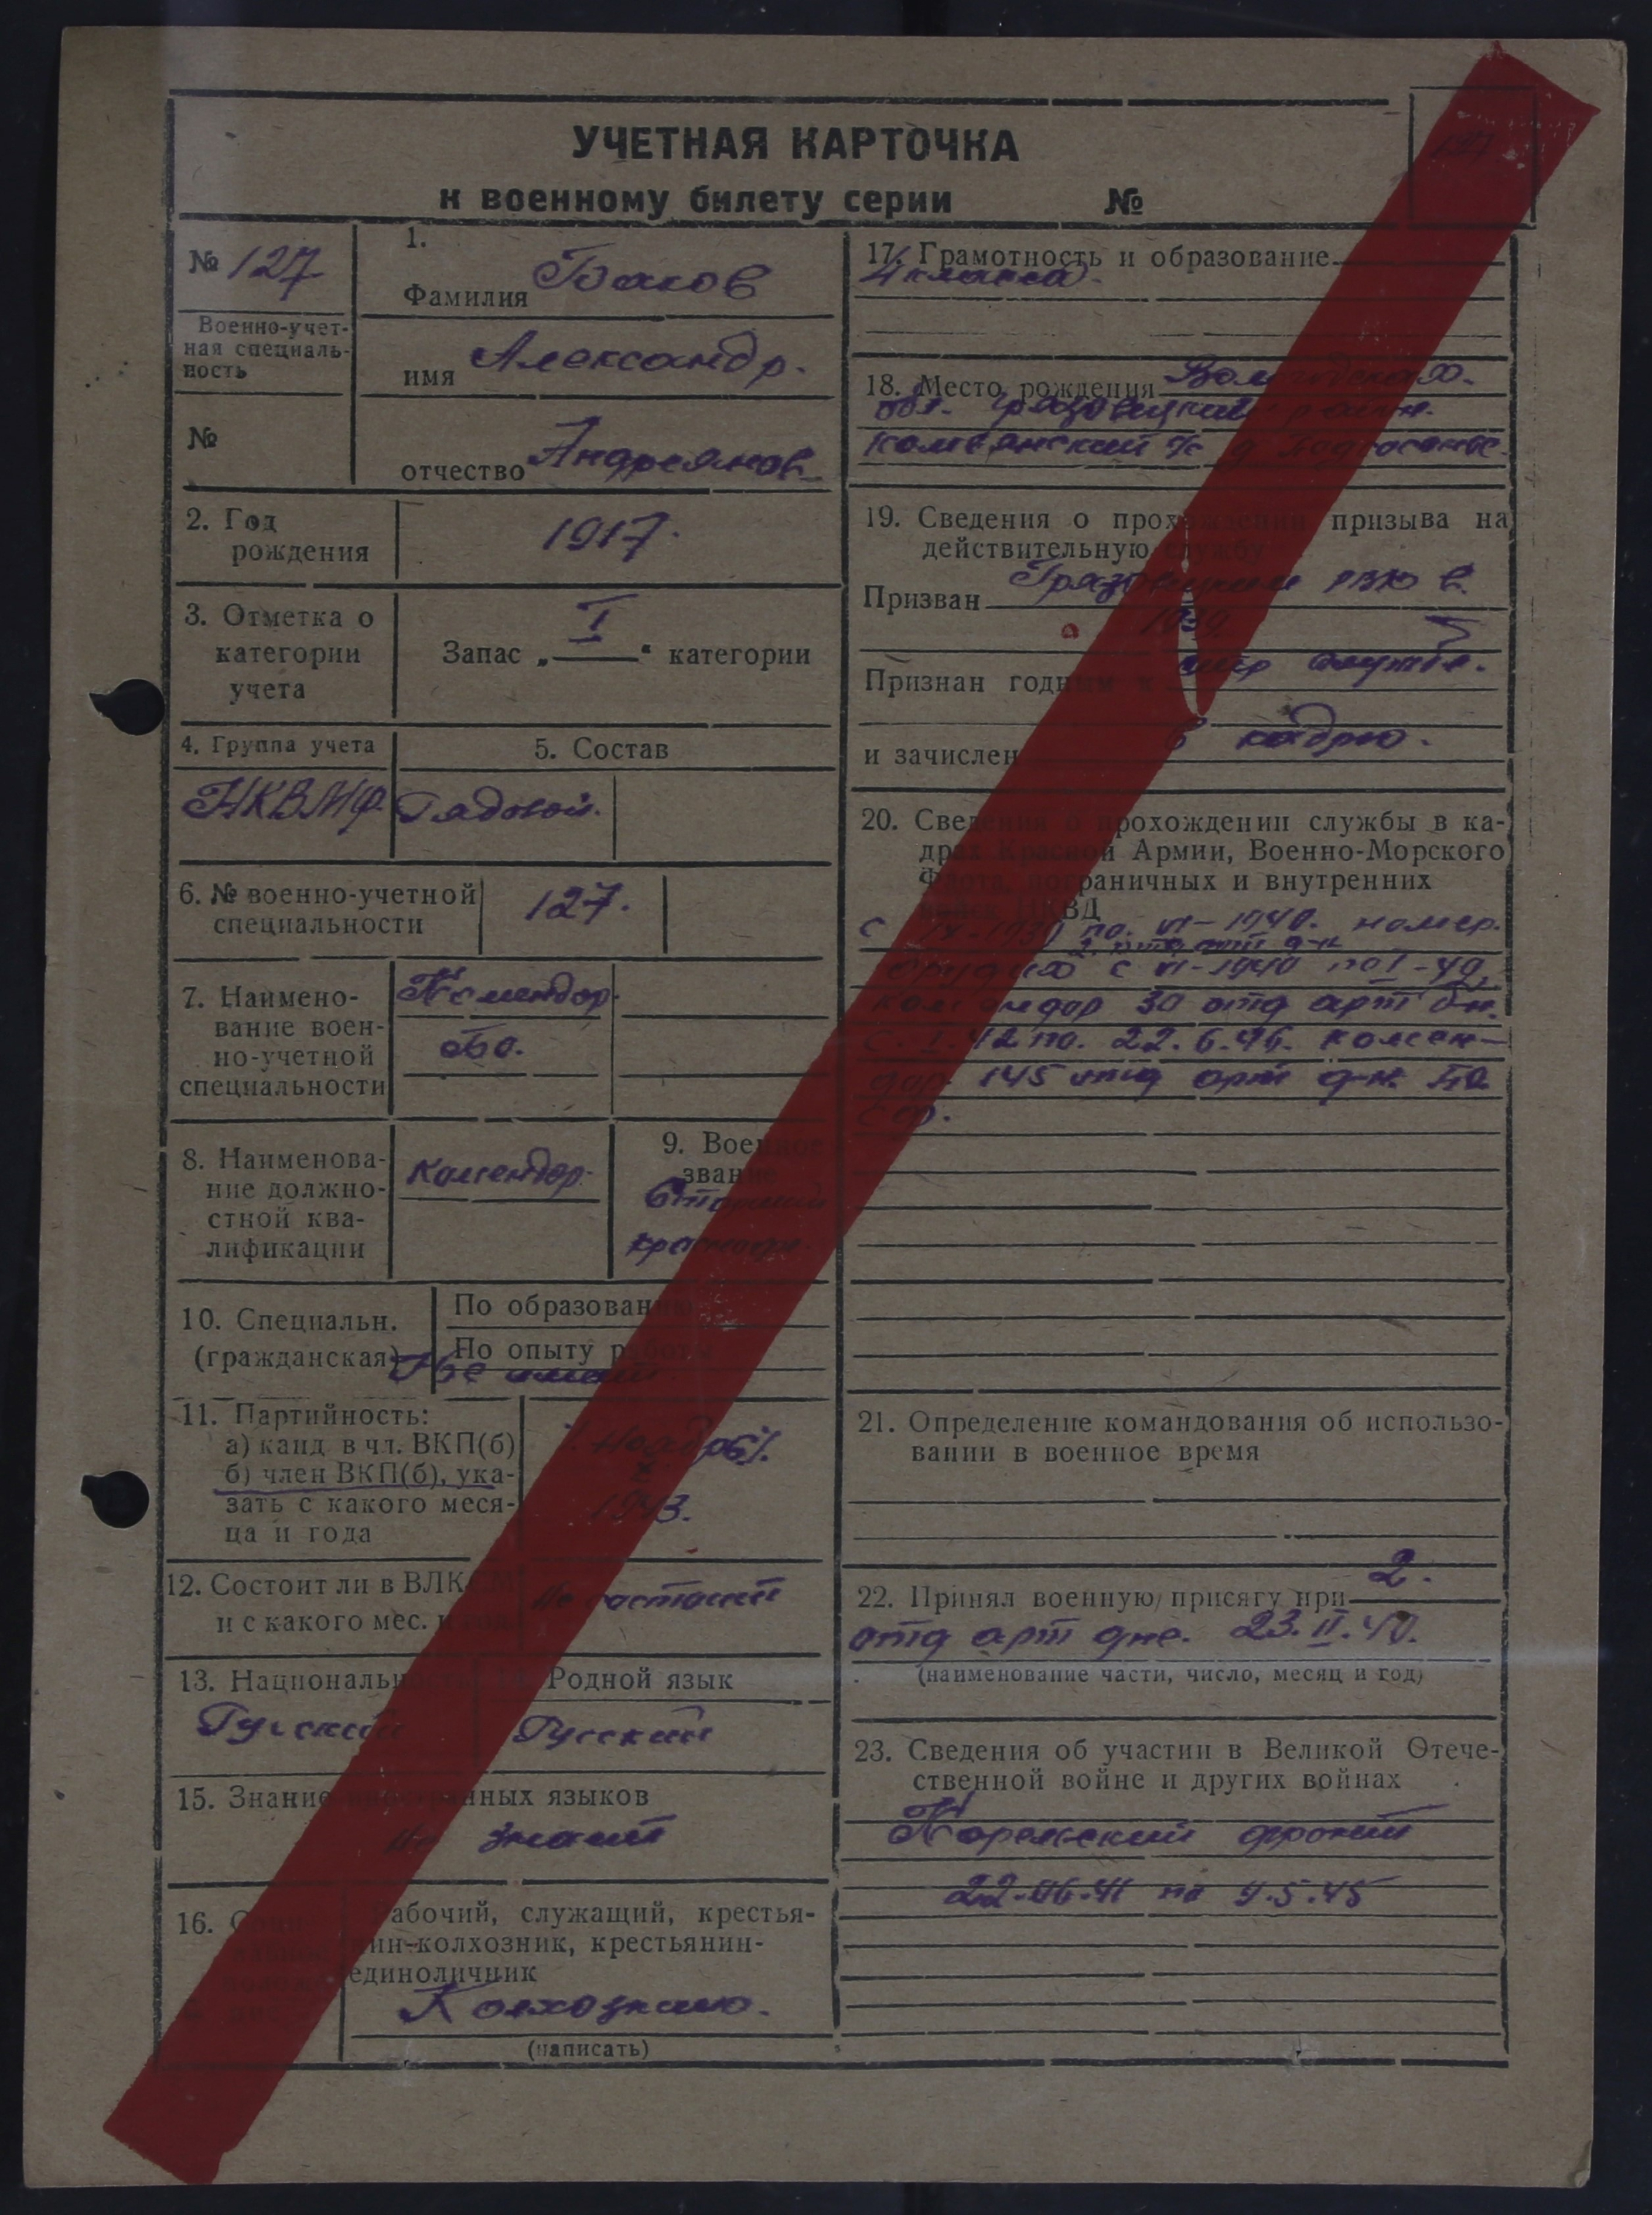 УЧЕТНАЯ КАРТОЧКА
к военному билету серии №
№ 127
Военно-учет-
ная специаль-
ность
№
1.
Фамилия Баков
имя Александр.
отчество Андреянов.
2. Год
рождения
1917.
3. Отметка о
категории
учета
Запас „ I “ категории
4. Группа учета
НКВМФ.
5. Состав
Рядовой.
6. № военно-учетной
специальности
127.
7. Наимено-
вание воен-
но-учетной
специальности
Комендор.
БО.
8. Наименова-
ние должно-
стной ква-
лификации
комендор.
9. Военное
звание
Старший
10. Специальн.
(гражданская)
По образованию
По опыту работы
Не имеет
11. Партийность:
а) канд. в чл. ВКП(б)
б) член ВКП(б), ука-
зать с какого меся-
ца и года
1943.
12. Состоит ли в ВЛКСМ
и с какого мес. и год.
Не состоит
13. Национальность
Русский
14. Родной язык
Русский
15. Знание иностранных языков
не знает
16.
Рабочий, служащий, крестья-
нин-колхозник, крестьянин-
единоличник
(написать)
17. Грамотность и образование
4 класса.
18. Место рождения Вологодская.
обл. Грязовецкий район.
19. Сведения о прохождении призыва на
действительную службу
Призван Грязовецким РВК в
1939.
Признан годным к службе.
и зачислен в кадры.
20. Сведения о прохождении службы в ка-
драх Красной Армии, Военно-Морского
Флота, пограничных и внутренних
войск НКВД
с IX-1939 по. VI-1940. номер.
2 отд арт д-н
орудия с VI-1940 по I-42.
комендор 30 отд арт дн.
с. I. 42 по. 22. 6. 46. комен-
дор. 145 отд арт д-н. БО.
СФ.
21. Определение командования об использо-
вании в военное время
22. Принял военную присягу при 2.
отд арт дне. 23. II. 40.
(наименование части, число, месяц и год)
23. Сведения об участии в Великой Отече-
ственной войне и других войнах
Карельский фронт
22-06-41 по 9.5.45